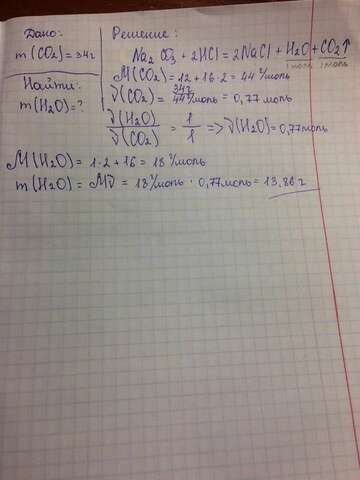 Дано:
m(CO₂)=34г
Найти:
m(H₂O)=?
Решение:
Na₂CO₃+2HCl=2NaCl+H₂O+CO₂↑
1моль 1моль
M(CO₂)=12+16·2=44 г/моль
ν(CO₂)=34г/44г/моль=0,77 моль
ν(H₂O)/ν(CO₂)=1/1=>ν(H₂O)=0,77моль
M(H₂O)=1·2+16=18 г/моль
m(H₂O)=Mν=18 г/моль·0,77моль=13,86г